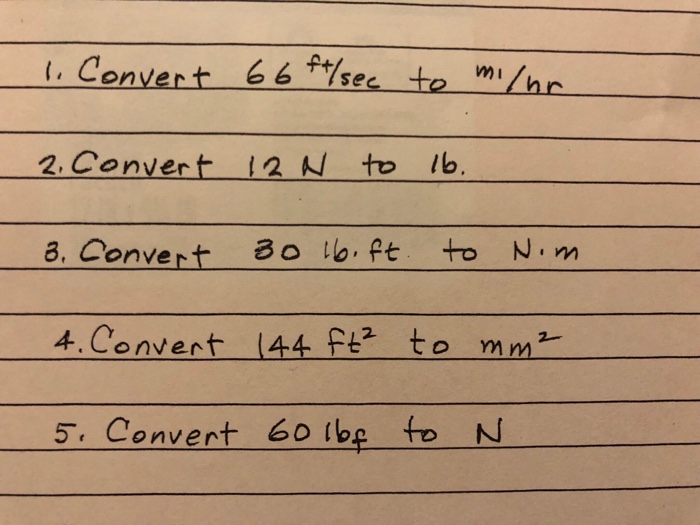 1. Convert 66 ft/sec to mi/hr
2. Convert 12 N to lb.
3. Convert 30 lb. ft. to N·m
4. Convert 144 ft² to mm²
5. Convert 60 lbf to N